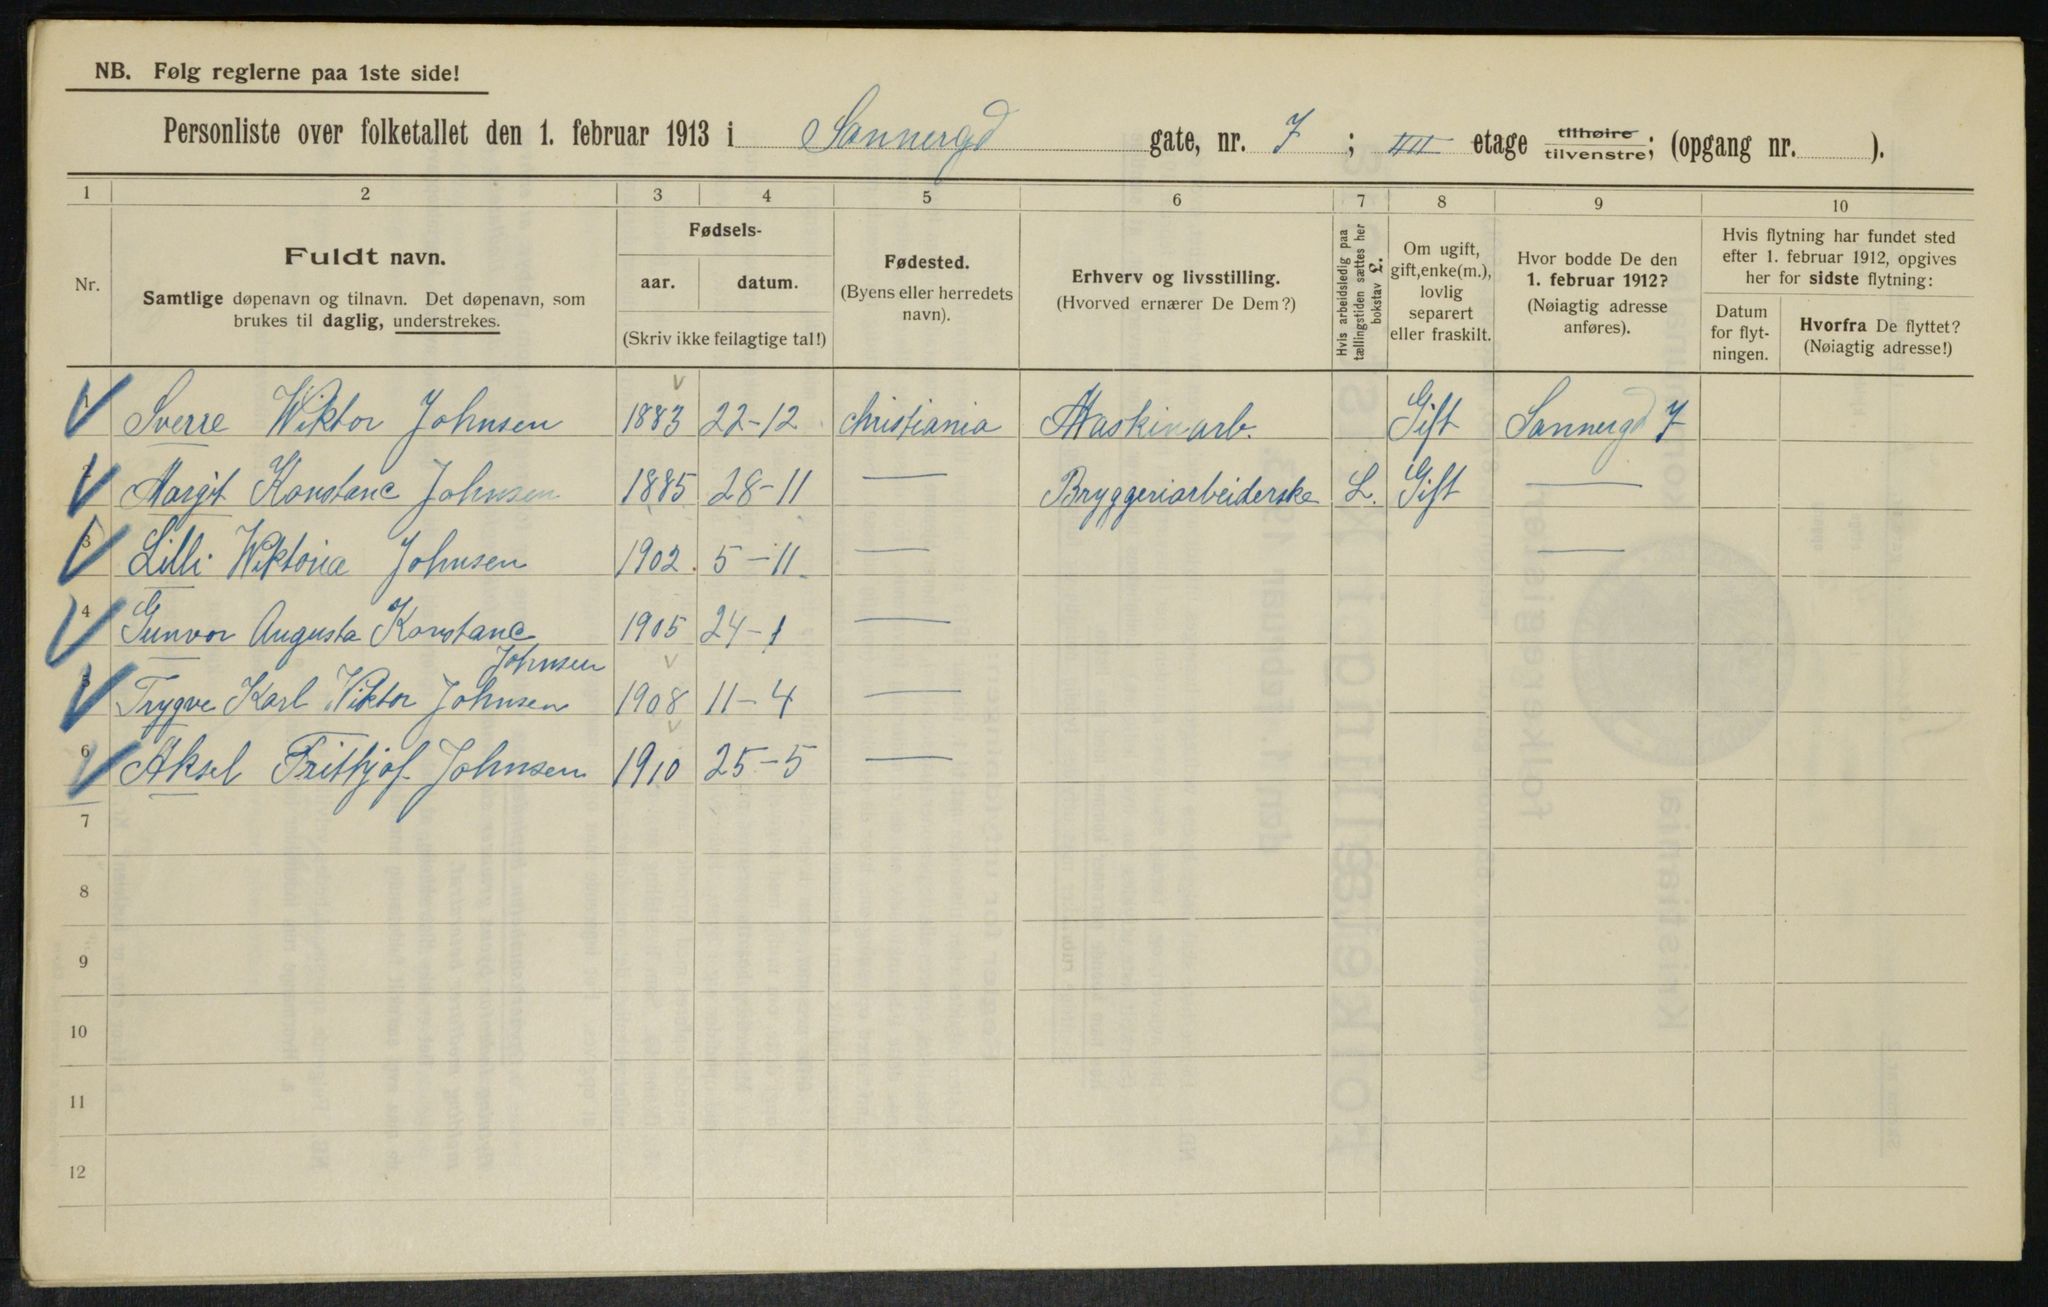 NB. Følg reglerne paa 1ste side!
Personliste over folketallet den 1. februar 1913 i Sannergd gate, nr. 7; IIII etage tilhøire tilvenstre; (opgang nr. ).
1 2 3 4 5 6 7 8 9 10
Nr.
Fuldt navn.
Samtlige døpenavn og tilnavn. Det døpenavn, som
brukes til daglig, understrekes.
Fødsels-
aar. datum.
(Skriv ikke feilagtige tal!)
Fødested.
(Byens eller herredets
navn).
Erhverv og livsstilling.
(Hvorved ernærer De Dem?)
Hvis arbeidsledig paa
tællingstiden sættes her
bokstav L.
Om ugift,
gift, enke(m.),
lovlig
separert
eller fraskilt.
Hvor bodde De den
1. februar 1912?
(Nøiagtig adresse
anføres).
Hvis flytning har fundet sted
efter 1. februar 1912, opgives
her for sidste flytning:
Datum
for flyt-
ningen.
Hvorfra De flyttet?
(Nøiagtig adresse!)
1 Sverre Wiktor Johnsen 1883 22-12 Christiania Maskinarb. Gift Sannergd 7
2 Margit Konstanc Johnsen 1885 28-11 — Bryggeriarbeiderske L. Gift —
3 Lilli Wiktoria Johnsen 1902. 5-11. — —
4 Gunvor Augusta Konstanc 1905 24-1 —
Johnsen
5 Trygve Karl Wiktor Johnsen 1908 11-4 —
6 Aksel Frithjof Johnsen 1910 25-5 —
7
8
9
10
11
12